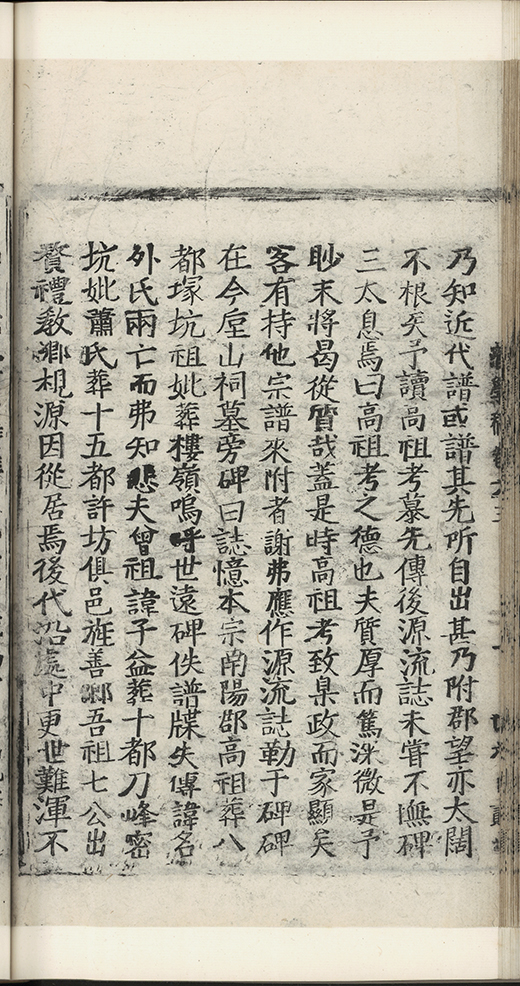 乃知近代譜或譜其先所自出甚乃附郡望亦太闊
不根矣予讀高祖考墓先傳後源流誌未甞不憮碑
三太息焉曰高祖考之德也夫質厚而篤洙微是予
眇末將曷從質哉蓋是時高祖考致臬政而家顯矣
客有持他宗譜來附者謝弗應作源流誌勒于碑碑
在今庢山祠墓旁碑曰誌憶本宗南陽郡高祖葬八
都塚坑祖妣葬樓嶺嗚呼世遠碑佚譜牒失傳諱名
外氏兩亡而弗知悲夫曾祖諱子益葬十都刀峰密
坑妣蕭氏葬十五都許坊俱邑旌善鄉吾祖七公出
贅禮教鄉梘源因從居焉後代沿處中更世難渾不